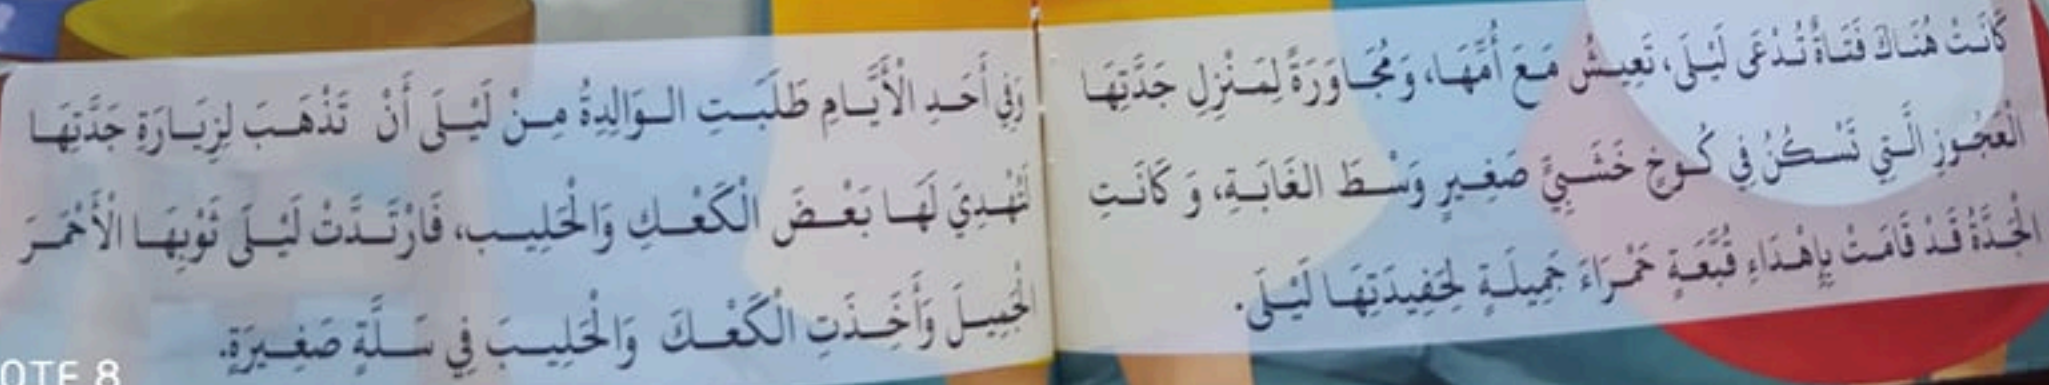 كَانَتْ هُنَاكَ فَتَاةٌ تُدْعَى لَيْلَى، تَعِيشُ مَعَ أُمِّهَا، وَمُجَاوَرَةً لِمَنْزِلِ جَدَّتِهَا
الْعَجُوزِ الَّتِي تَسْكُنُ فِي كُوخٍ خَشَبِيٍّ صَغِيرٍ وَسْطَ الغَابَةِ، وَ كَانَتِ
الْجَدَّةُ قَدْ قَامَتْ بِإِهْدَاءِ قُبَّعَةٍ حَمْرَاءَ جَمِيلَةٍ لِحَفِيدَتِهَا لَيْلَى.
وَفِي أَحَدِ الْأَيَّامِ طَلَبَتِ الوَالِدِةُ مِنْ لَيْلَى أَنْ تَذْهَبَ لِزِيَارَةِ جَدَّتِهَا
لِتُهْدِيَ لَهَا بَعْضَ الْكَعْكِ وَالْحَلِيبِ، فَارْتَدَّتْ لَيْلَى ثَوْبِهَا الْأَحْمَرَ
الْجَمِيلَ وَأَخَذَتِ الْكَعْكَ وَالْحَلِيبَ فِي سَلَّةٍ صَغِيرَةٍ.
OTE 8